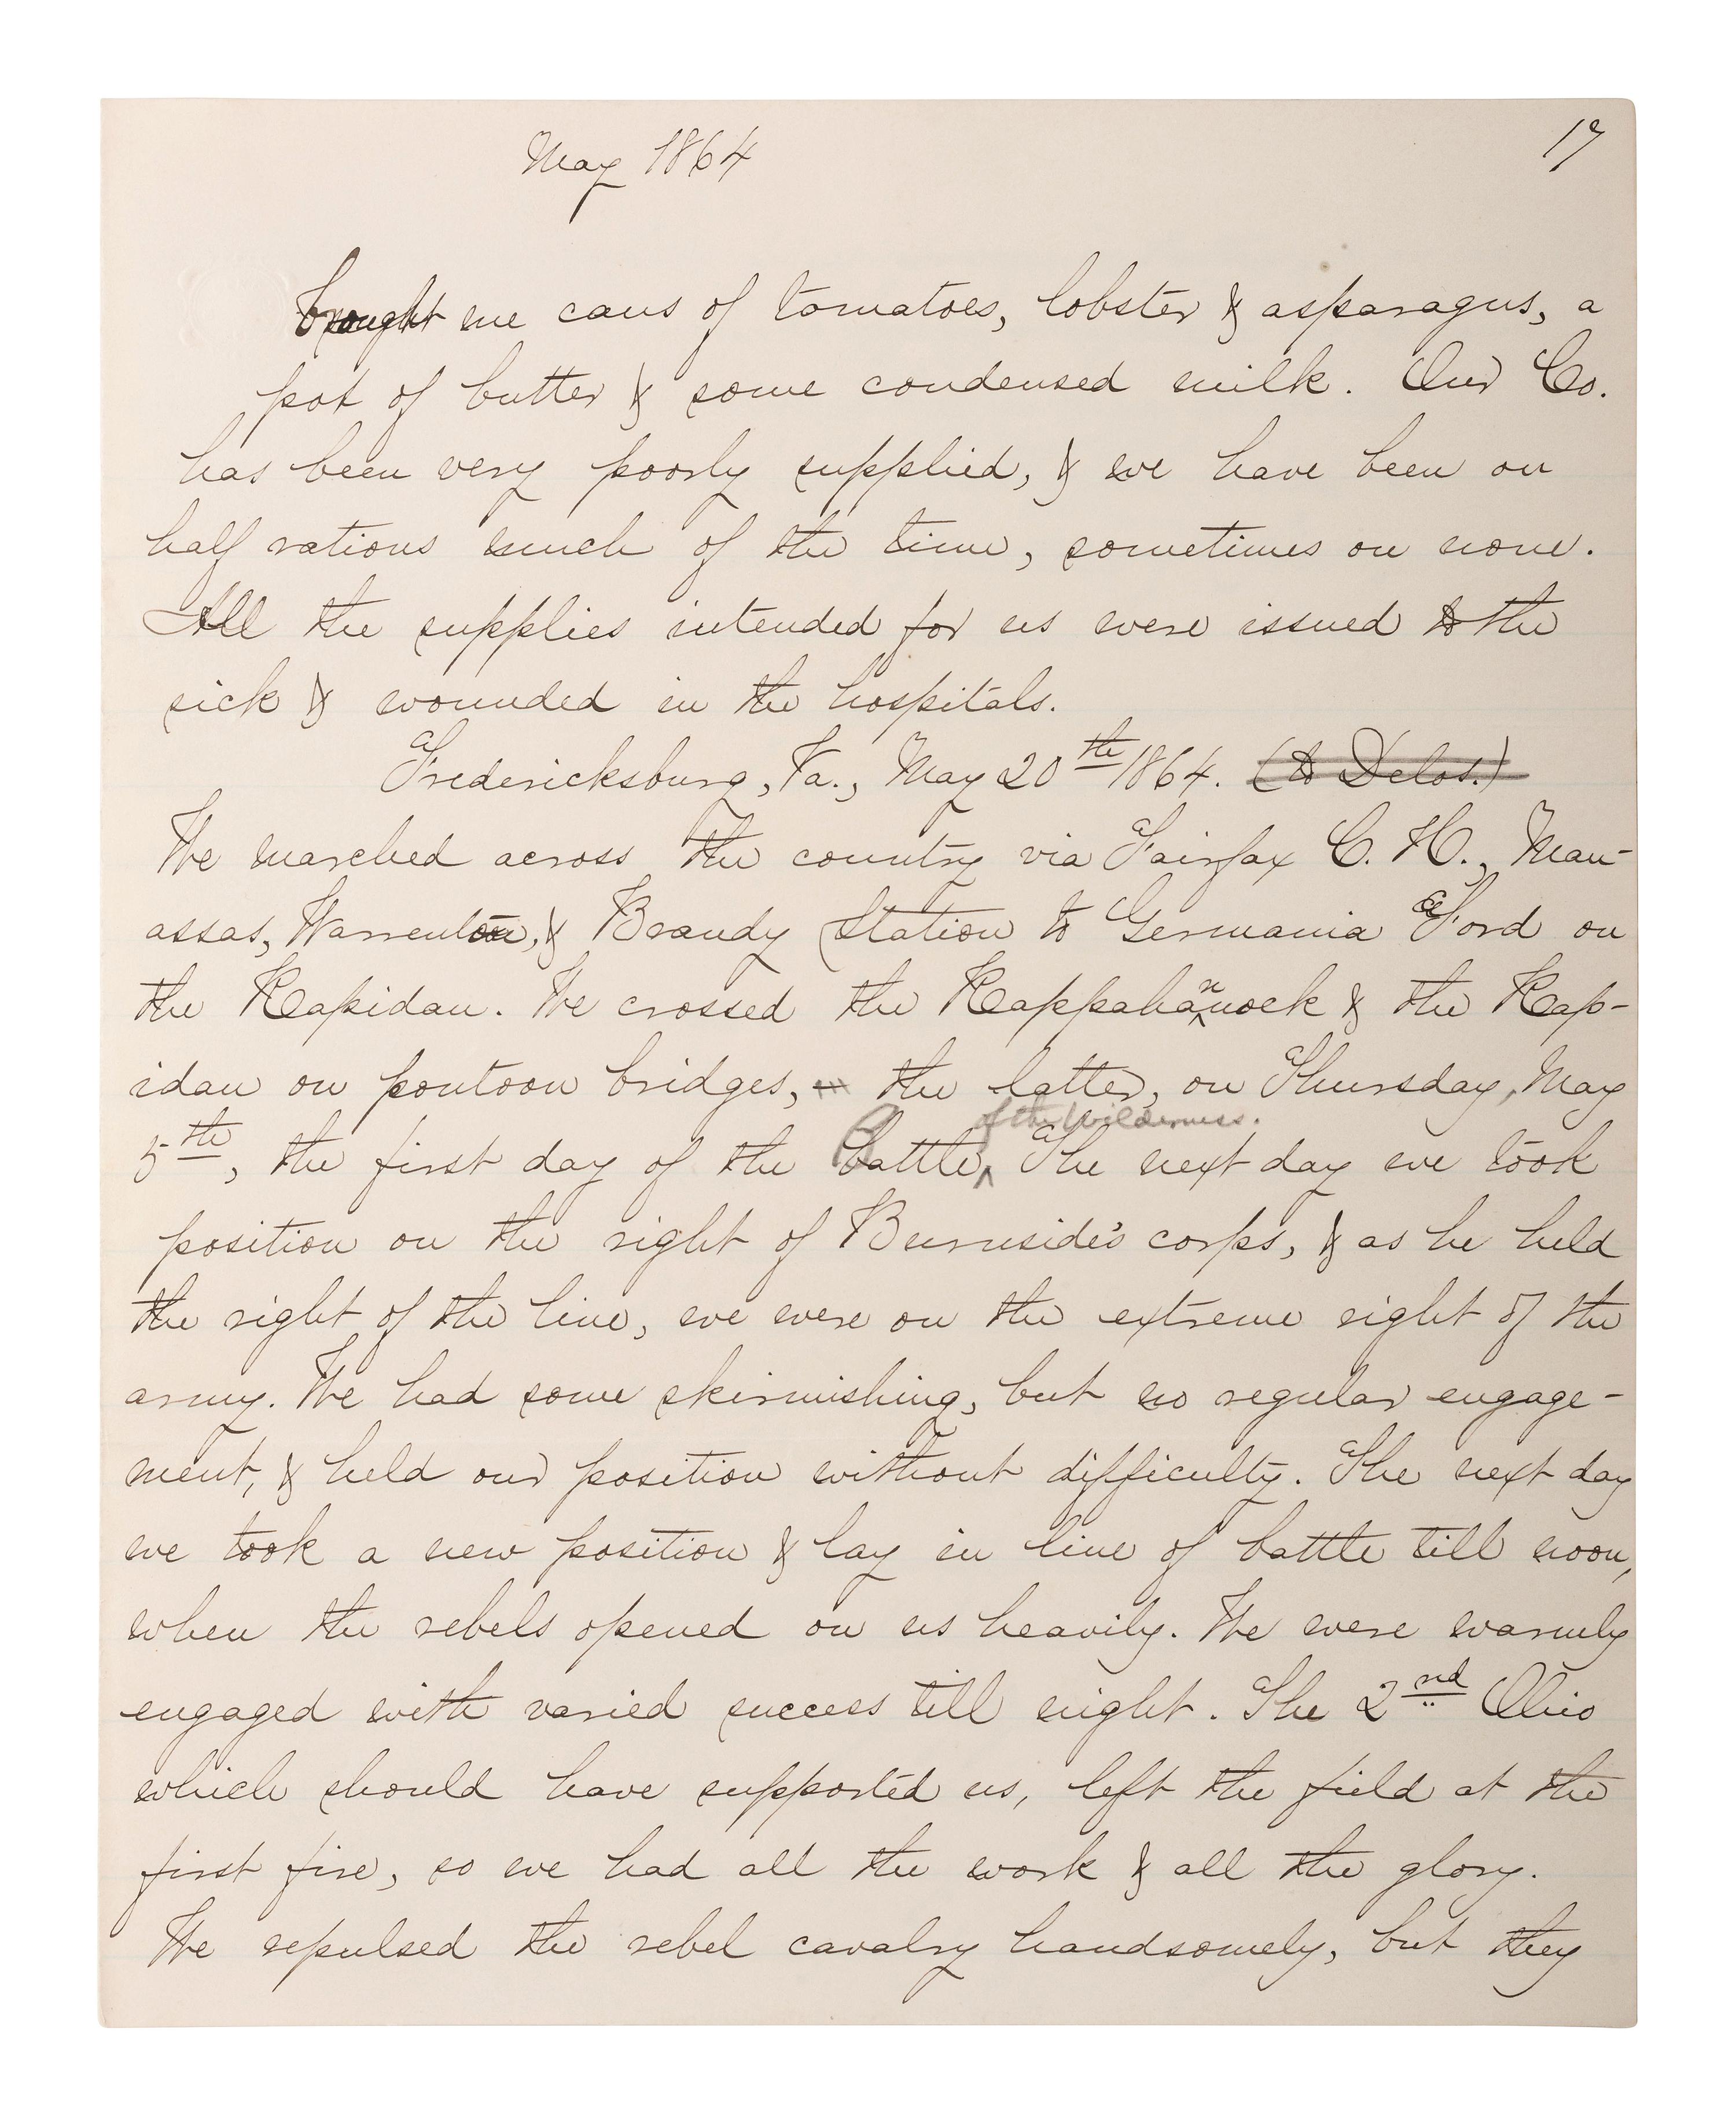 May 1864
17
brought me cans of tomatoes, lobster & asparagus, a
pot of butter & some condensed milk. Our Co.
has been very poorly supplied, & we have been on
half rations much of the time, sometimes on none.
All the supplies intended for us were issued to the
sick & wounded in the hospitals.
Fredericksburg, Va., May 20th 1864. (to Delos.)
We marched across the country via Fairfax C. H., Man-
assas, Warrenton, & Brandy Station to Germania Ford on
the Rapidan. We crossed the Rappahannock & the Rap-
idan on pontoon bridges, the latter, on Thursday, May
of the Wilderness.
5th, the first day of the Battle. The next day we took
position on the right of Burnside's corps, & as he held
the right of the line, we were on the extreme right of the
army. We had some skirmishing, but no regular engage-
ment, & held our position without difficulty. The next day
we took a new position & lay in line of battle till noon,
when the rebels opened on us heavily. We were warmly
engaged with varied success till night. The 2nd Ohio
which should have supported us, left the field at the
first fire, so we had all the work & all the glory.
We repulsed the rebel cavalry handsomely, but they